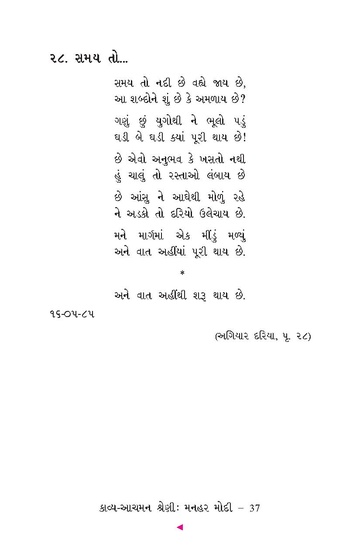 ૨૮. સમય તો...
સમય તો નદી છે વહ્યે જાય છે,
આ શબ્દોને શું છે કે અમળાય છે?
ગણું છું યુગોથી ને ભૂલો પડું
ઘડી બે ઘડી ક્યાં પૂરી થાય છે!
છે એવો અનુભવ કે ખસતો નથી
હું ચાલું તો રસ્તાઓ લંબાય છે
છે આંસુ ને આઘેથી મોળું રહે
ને અડકો તો દરિયો ઉલેચાય છે.
મને માર્ગમાં એક મીંડું મળ્યું
અને વાત અહીંયાં પૂરી થાય છે.
*
અને વાત અહીંથી શરૂ થાય છે.
૧૬-૦૫-૮૫
(અગિયાર દરિયા, પૃ. ૨૮)
કાવ્ય-આચમન શ્રેણીઃ મનહર મોદી – 37